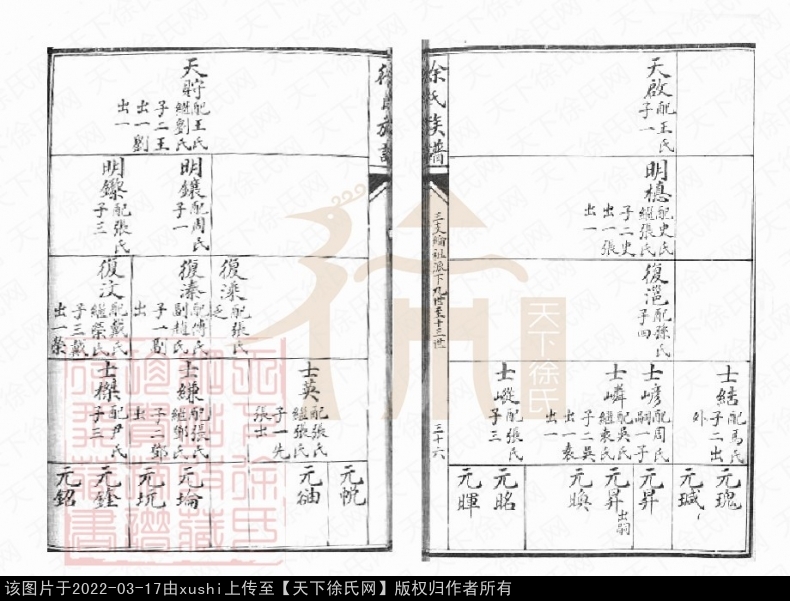 天啟 配王氏
子一
明檖 配史氏
繼張氏
子二史
出一張
出一
復滬 配孫氏
子四
士結 配馬氏
子二出
外
士嵃 配周氏
嗣一子
士嶙 配吳氏
繼袁氏
子二吳
出一袁
出一
士嵷 配張氏
子三
元瑰
元瑊
元昇
元昇 出嗣
元㬇
元昭
元暉
徐氏族譜
三支綸祖派下九世至十三世
三十六
徐氏族譜
天
配王氏
繼劉氏
子二王
出一劉
出一
明鑲 配周氏
子一
明鏫 配張氏
子三
復
配張氏
乏
復溱 配傅氏
副趙氏
子一副
出
復汶 配戴氏
繼榮氏
子三戴
出一榮
士英 配張氏
繼張氏
子一先
張出
士縑 配張氏
繼鄭氏
子二鄭
出
士榤 配尹氏
子三
元帨
元
元埨
元坃
元銓
元鉊
天下徐氏
该图片于2022-03-17由xushi上传至【天下徐氏网】版权归作者所有